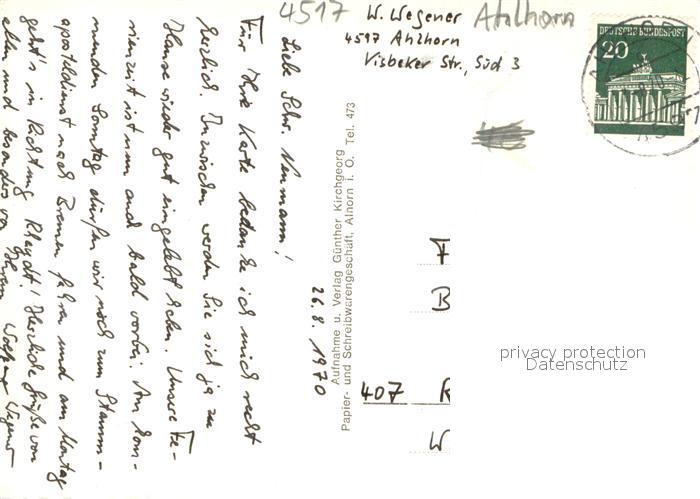 4517 W. Wegener Ahlhorn
4517 Ahlhorn
Visbeker Str., Süd 3
DEUTSCHE BUNDESPOST
20
26.8.1970
Liebe Schr. Neumann!
Für Ihre Karte bedanke ich mich recht
herzlich. Inzwischen werden Sie sich ja zu
Hause wieder gut eingelebt haben. Unsere Fe-
rienzeit ist nun auch bald vorbei. Am kom-
menden Sonntag dürfen wir noch zum Stamm-
aposteldienst nach Bremen fahren und am Montag
geht's in Richtung Rheydt! Herzliche Grüße von
allen und besonders von Ihrem Wolfgang Wegener
Aufnahme u. Verlag Günther Kirchgeorg
Papier- und Schreibwarengeschäft, Alnorn i. O. Tel. 473
F
B
407 R
W
privacy protection
Datenschutz